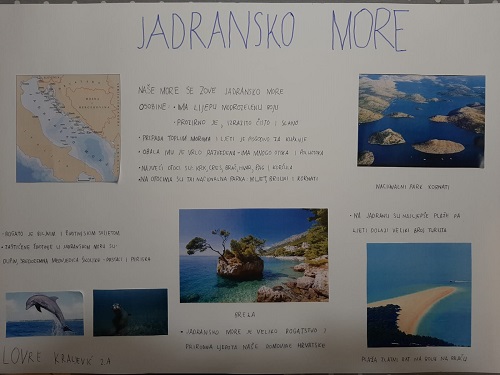 JADRANSKO MORE
NAŠE MORE SE ZOVE JADRANSKO MORE
OSOBINE: • IMA LIJEPU MODROZELENU BOJU
• PROZIRNO JE, IZRAZITO ČISTO I SLANO
• PRIPADA TOPLIM MORIMA I LJETI JE POGODNO ZA KUPANJE
• OBALA MU JE VRLO RAZVEDENA - IMA MNOGO OTOKA I POLUOTOKA
• NAJVEĆI OTOCI SU: KRK, CRES, BRAČ, HVAR, PAG I KORČULA
• NA OTOCIMA SU TRI NACIONALNA PARKA: MLJET, BRIJUNI I KORNATI
NACIONALNI PARK KORNATI
• BOGATO JE BILJNIM I ŽIVOTINJSKIM SVIJETOM
• ZAŠTIĆENE ŽIVOTINJE U JADRANSKOM MORU SU:
DUPIN, SREDOZEMNA MEDVJEDICA, ŠKOLJKE - PRSTACI I PERISKA
• NA JADRANU SU NAJLJEPŠE PLAŽE PA
LJETI DOLAZI VELIKI BROJ TURISTA
BRELA
• JADRANSKO MORE JE VELIKO BOGATSTVO I
PRIRODNA LJEPOTA NAŠE DOMOVINE HRVATSKE
PLAŽA ZLATNI RAT NA BOLU NA BRAČU
LOVRE 2.A